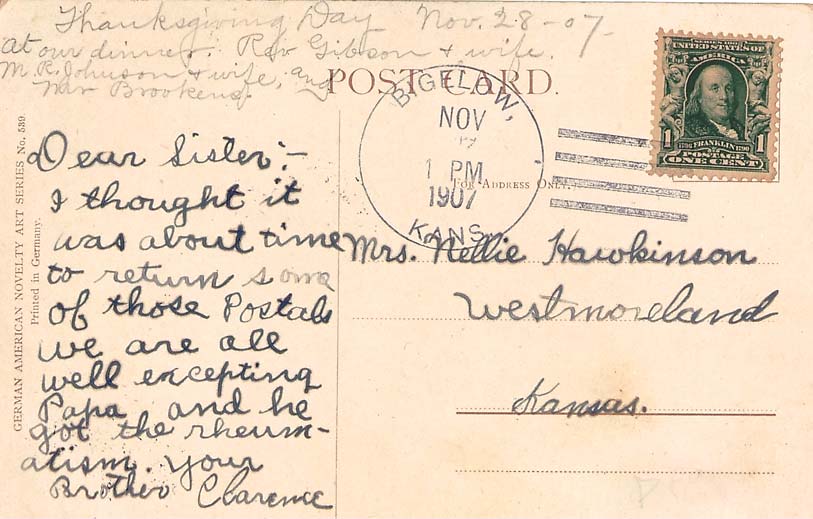 Thanksgiving Day Nov. 28-07-
at our dinner. Rev Gibson & wife.
M. R. Johnson & wife, and
POST CARD.
BIGELOW,
NOV
1 PM
1907
KANS.
SERIES 1902
UNITED STATES OF
AMERICA
1 1706 FRANKLIN 1790 1
POSTAGE
ONE CENT
FOR ADDRESS ONLY.
GERMAN AMERICAN NOVELTY ART SERIES No. 539
Printed in Germany.
Dear Sister:-
I thought it
was about time
to return some
of those Postals
we are all
well excepting
Papa and he
got the rheum-
atism. your
Brother Clarence
Mrs. Nellie Hawkinson
Westmoreland
Kansas.